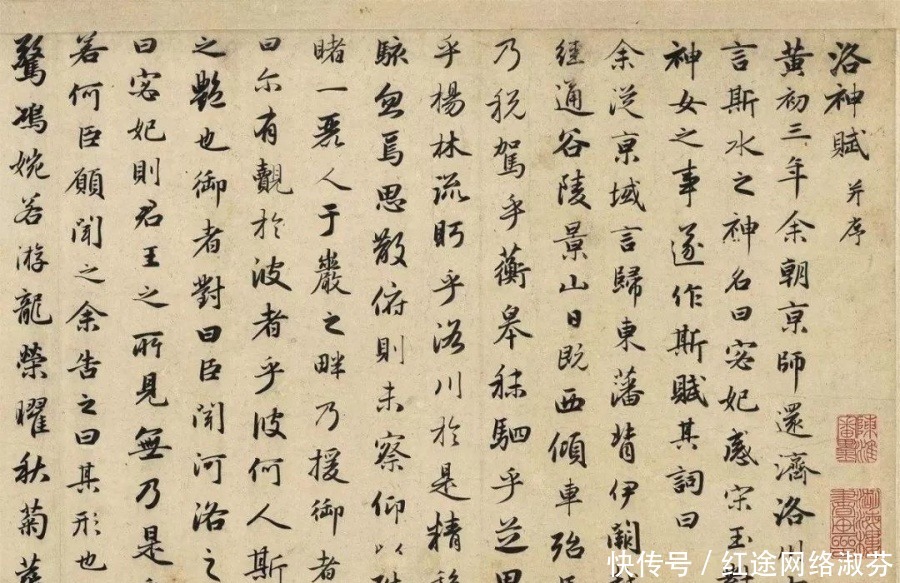 洛神賦 并序
黄初三年余朝京師還濟洛川
言斯水之神名曰宓妃感宋玉
神女之事遂作斯賦其詞曰
余從京域言歸東藩背伊闕
經通谷陵景山日既西傾車殆
乃税駕乎蘅皋秣駟乎芝田
乎楊林流眄乎洛川於是精移
駭忽焉思散俯則未察仰以殊
睹一麗人于巖之畔乃援御者
曰尓有覿於彼者乎彼何人斯
之艷也御者對曰臣聞河洛之
曰宓妃則君王之所見無乃是
若何臣願聞之余告之曰其形也
驚鴻婉若游龍榮曜秋菊華
快传号／红途网络淑芬